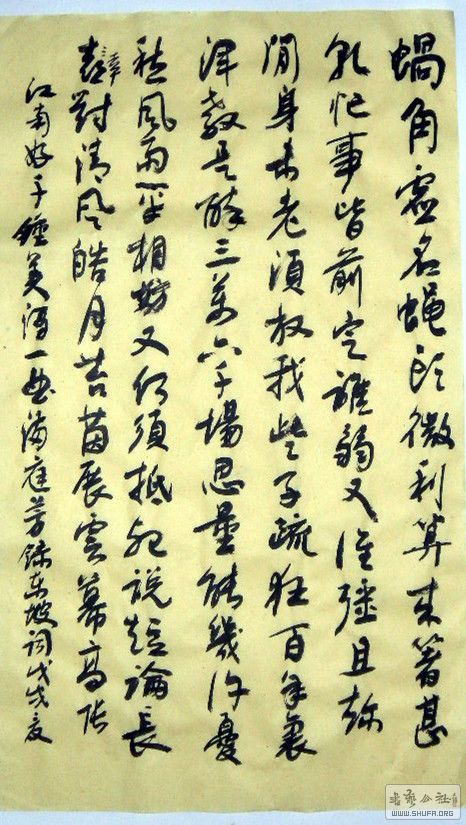 蝸角虛名蝇头微利算来著甚
乾忙事皆前定誰弱又谁强且趁
閒身未老須放我些子疏狂百年裏
渾教是醉三萬六千場思量能幾许憂
愁風雨一半相妨又何須抵死說短論長
對清風皓月苔茵展雲幕高张
江南好千鍾美酒一曲滿庭芳錄东坡詞戊戌夏
书艺公社
WWW.SHUFA.ORG